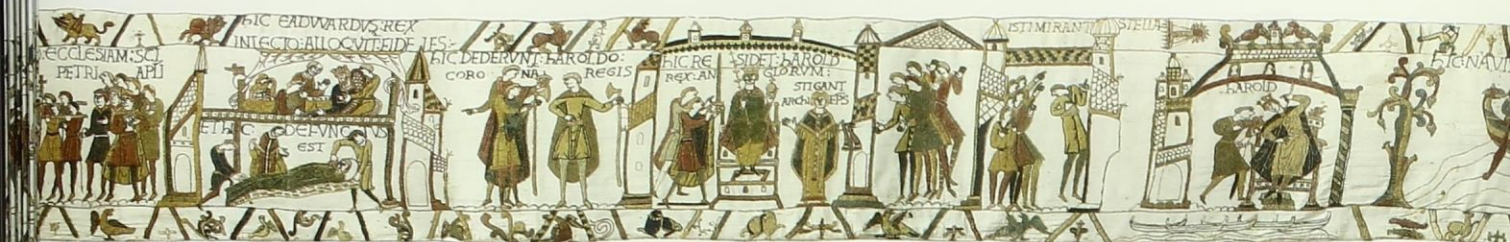 ECCLESIAM: SCI
PETRI APLI
HIC EADWARDVS: REX
IN LECTO: ALLOQVIT: FIDELES:
ET HIC DEFVNCTVS
EST
HIC DEDERVNT: HAROLDO:
CORONA REGIS
HIC RESIDET: HAROLD
REX: ANGLORVM:
STIGANT
ARCHIEPS
ISTI MIRANT STELLA
HAROLD
HIC: NAVI